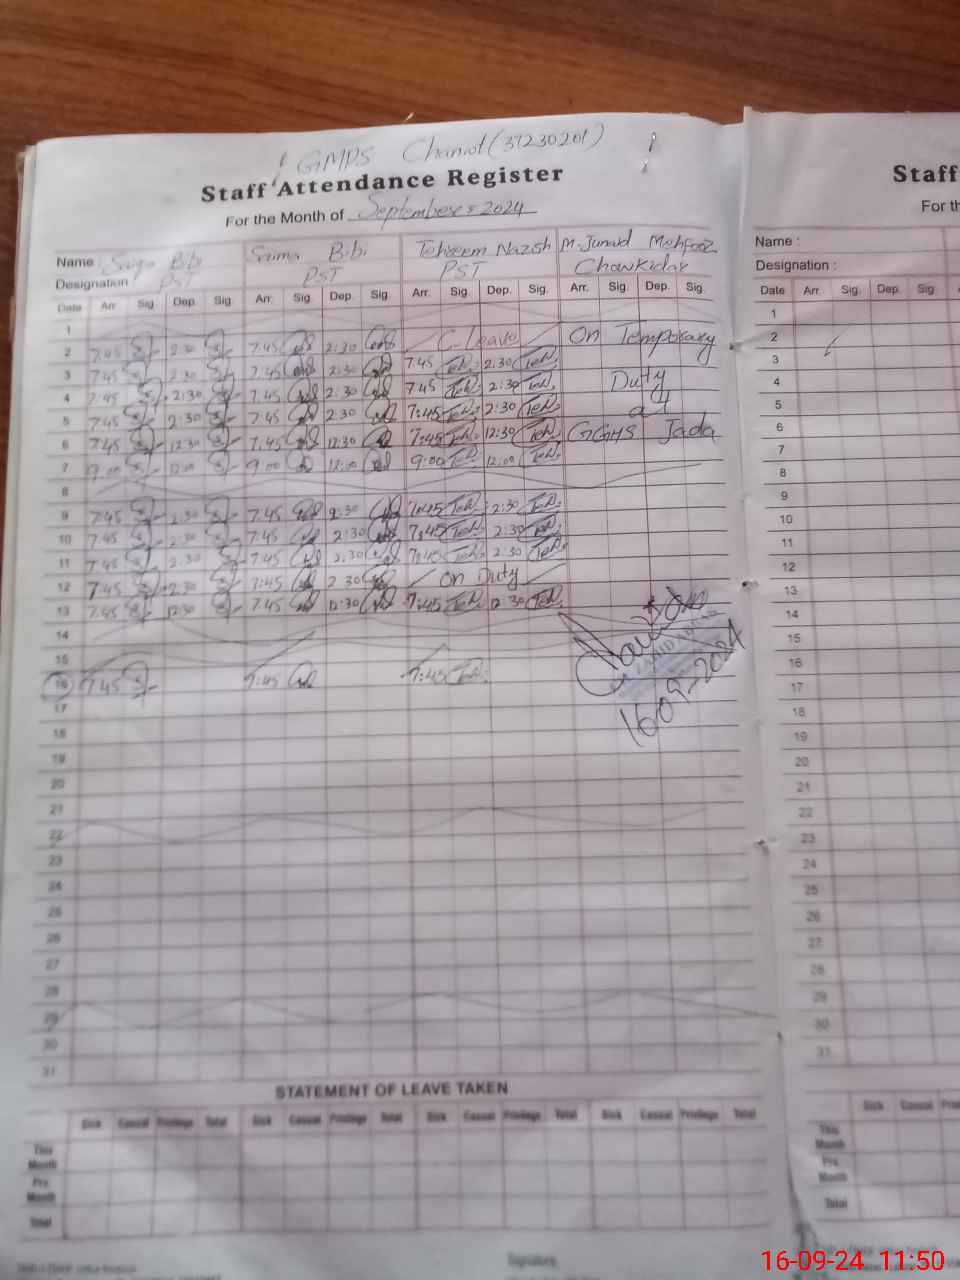 GMPS Chaniot (37230201)
Staff Attendance Register
For the Month of September 2024
Name Saiqa Bibi Saima Bibi Tehseem Nazish M. Junaid Mehfooz
Designation PST PST PST Chowkidar
Date Arr. Sig. Dep. Sig. Arr. Sig. Dep. Sig. Arr. Sig. Dep. Sig. Arr. Sig. Dep. Sig.
1
2 7:45 2:30 7:45 2:30 C-Leave On Temporary
3 7:45 2:30 7:45 2:30 7:45 2:30
4 7:45 2:30 7:45 2:30 7:45 2:30 Duty
5 7:45 2:30 7:45 2:30 7:45 2:30 at
6 7:45 12:30 7:45 12:30 7:45 12:30 GGHS Jada
7 9:00 12:00 9:00 12:00 9:00 12:00
8
9 7:45 2:30 7:45 2:30 7:45 2:30
10 7:45 2:30 7:45 2:30 7:45 2:30
11 7:45 2:30 7:45 2:30 7:45 2:30
12 7:45 2:30 7:45 2:30 On Duty
13 7:45 12:30 7:45 12:30 7:45 12:30
14
15
16 7:45 7:45 7:45
16-09-2024
17
18
19
20
21
22
23
24
25
26
27
28
29
30
31
STATEMENT OF LEAVE TAKEN
Sick Casual Privilege Total Sick Casual Privilege Total Sick Casual Privilege Total Sick Casual Privilege Total
This Month
Pre. Month
Total
Signature
Staff
For th
Name :
Designation :
Date Arr. Sig. Dep. Sig
1
2
3
4
5
6
7
8
9
10
11
12
13
14
15
16
17
18
19
20
21
22
23
24
25
26
27
28
29
30
31
Sick Casual
This Month
Pre. Month
Total
16-09-24 11:50